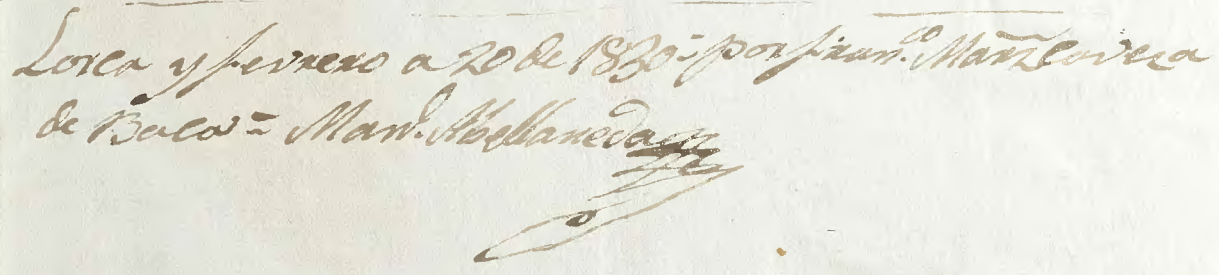 Lorca y febrero a 20 de 1830= por Fran.co Marz Caveza
de Baca= Man.l Abellaneda